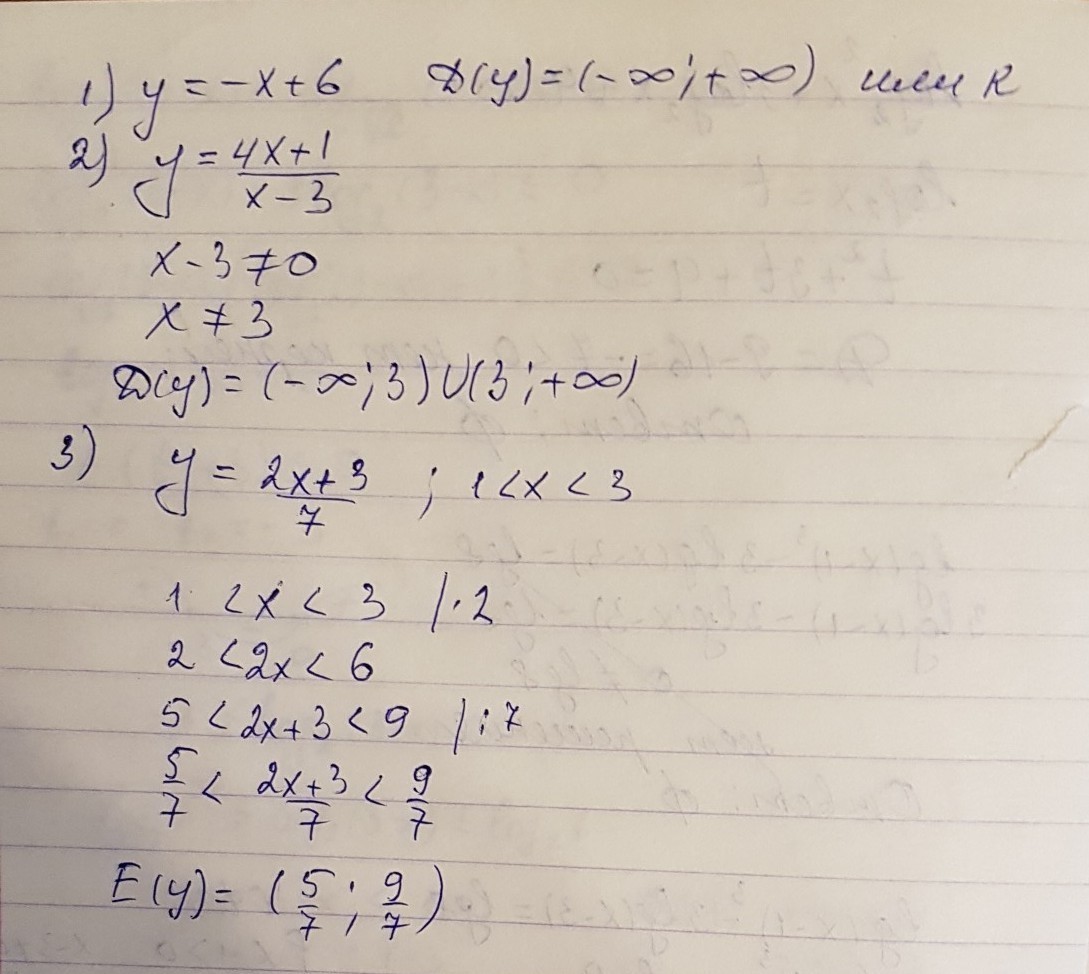 1) y = -x+6 D(y)=(-∞;+∞) или R
2) y = \frac{4x+1}{x-3}
x-3≠0
x≠3
D(y)=(-∞;3)∪(3;+∞)
3) y = \frac{2x+3}{7} ; 1<x<3
1<x<3 /·2
2<2x<6
5<2x+3<9 /:7
\frac{5}{7}<\frac{2x+3}{7}<\frac{9}{7}
E(y)=(\frac{5}{7};\frac{9}{7})